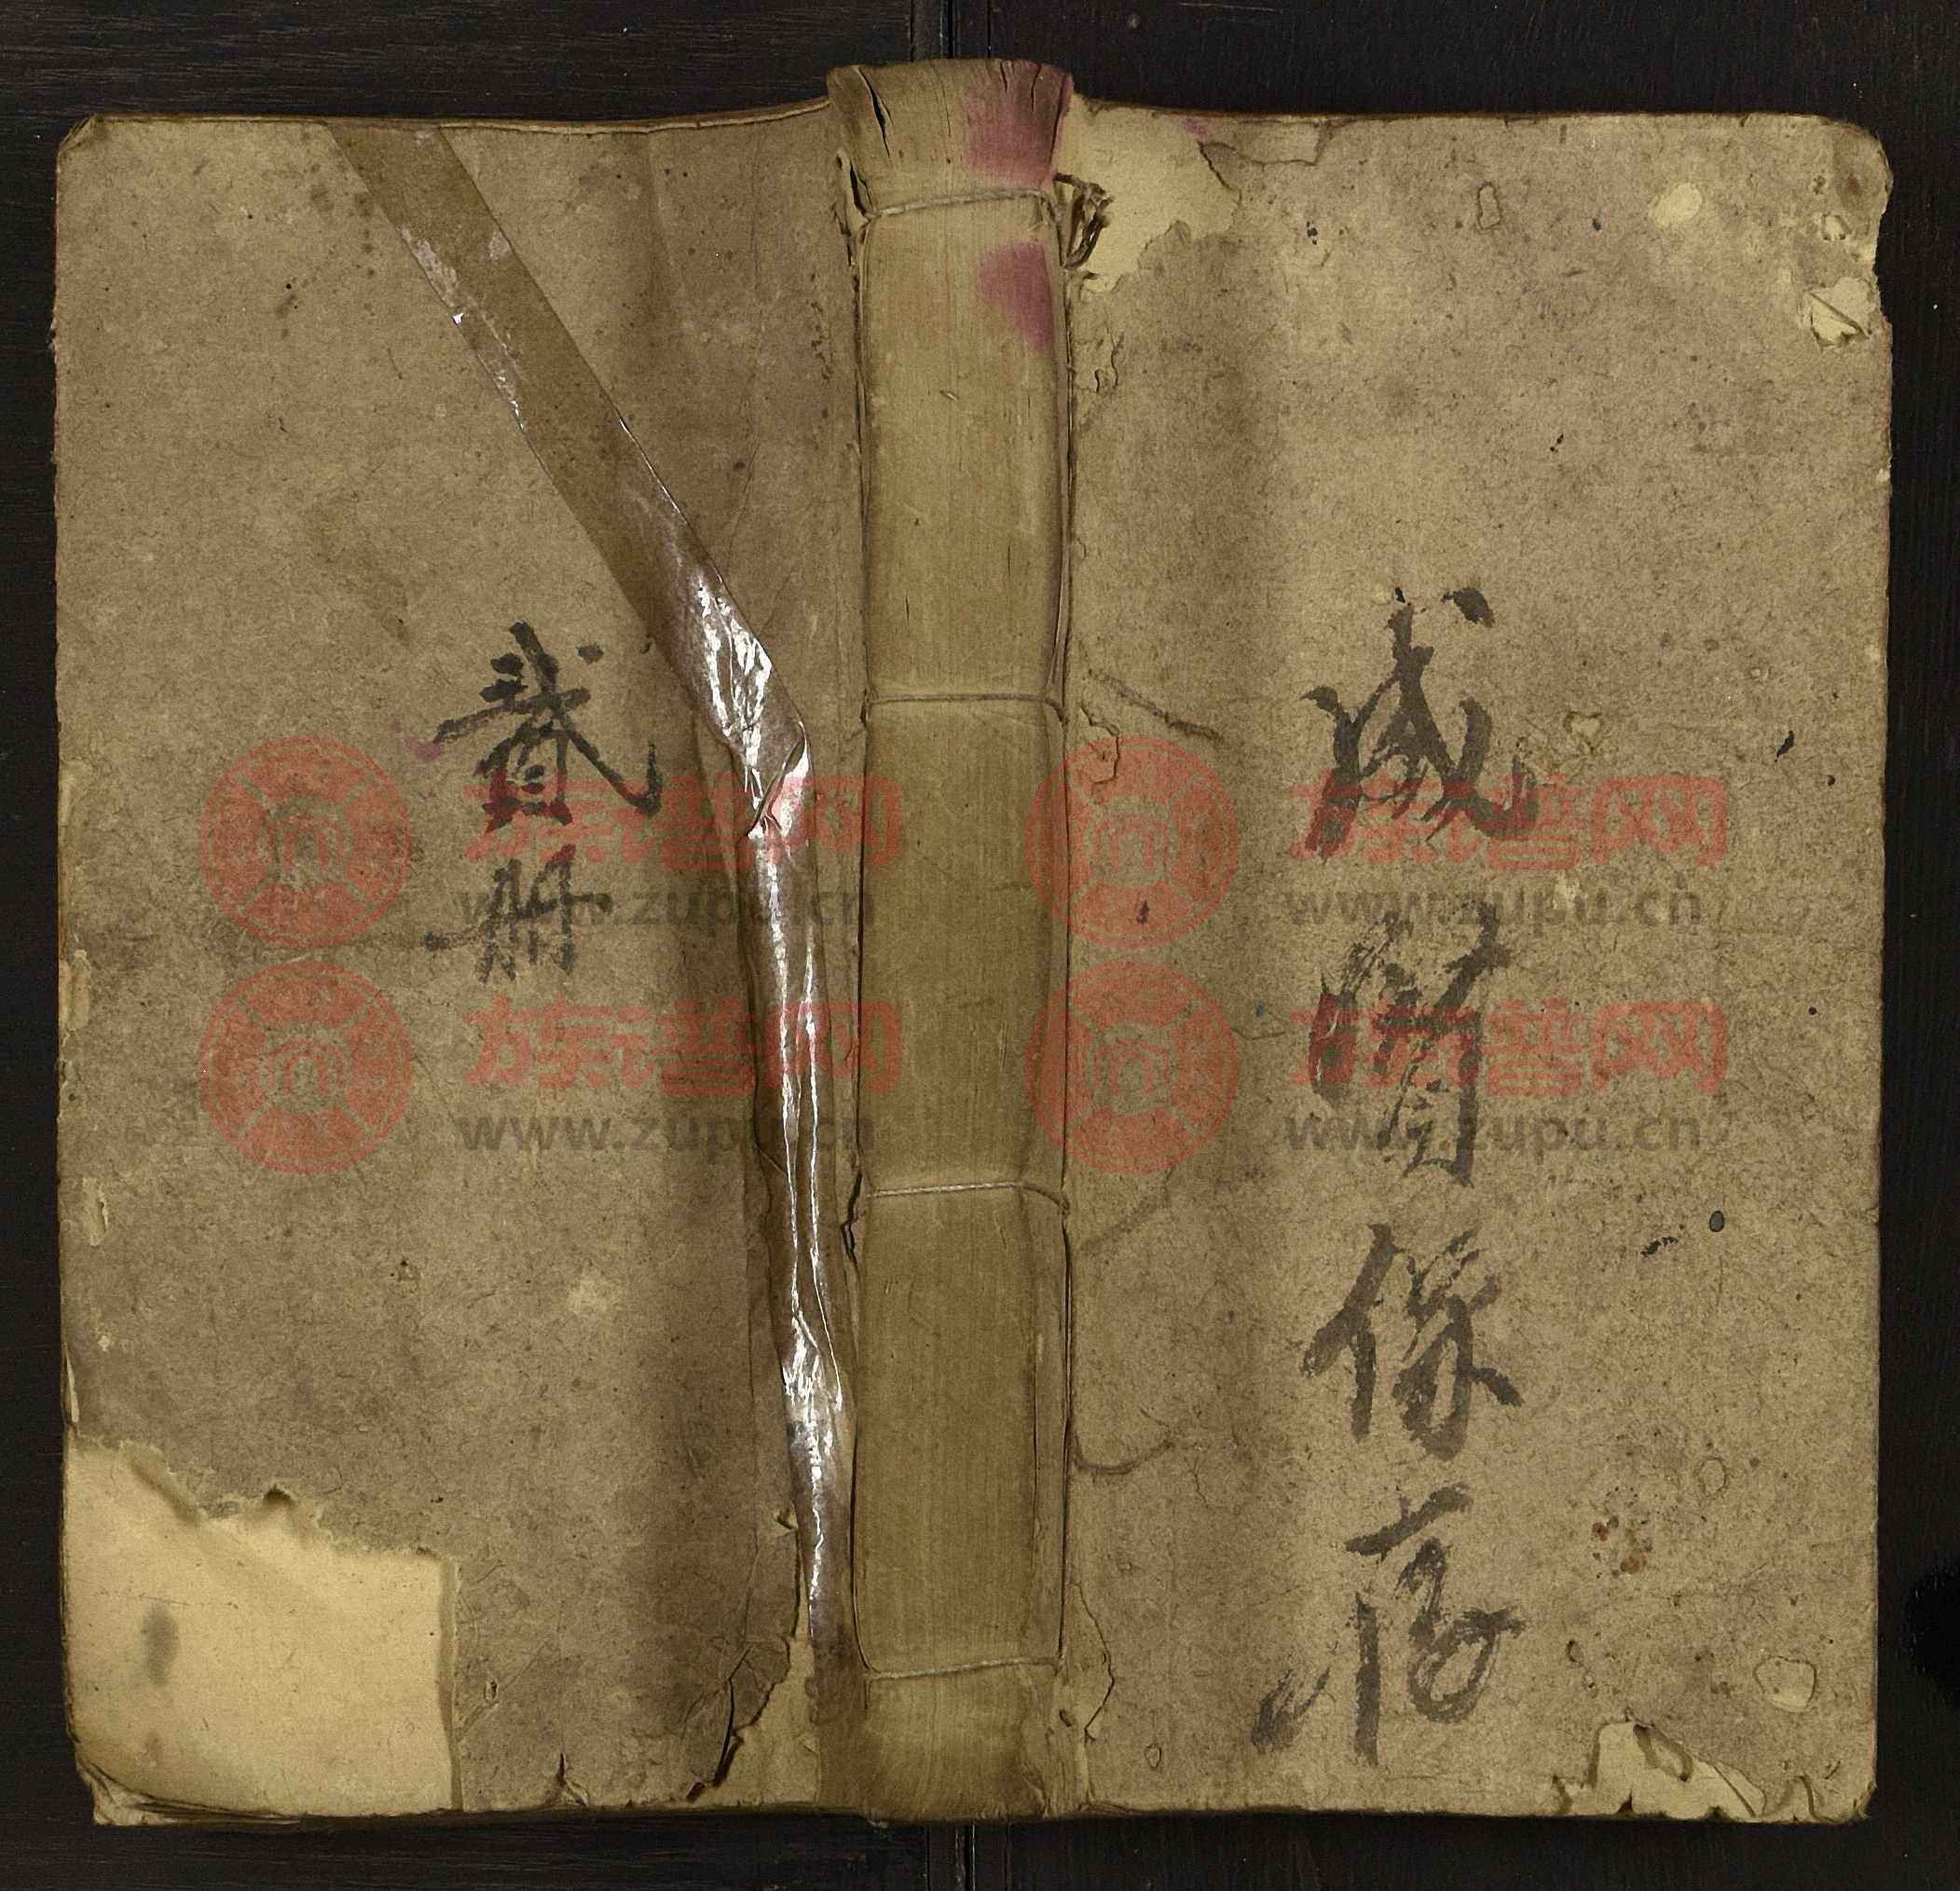 成賢保存
貳册
族谱网
www.zupu.cn
族谱网
www.zupu.cn
族谱网
www.zupu.cn
族谱网
www.zupu.cn